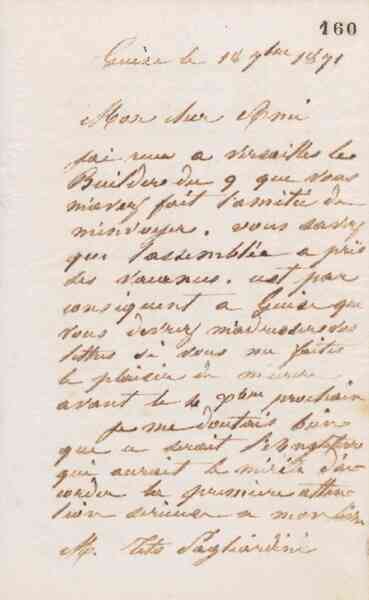 160
Guise le 18 7bre 1871
Mon cher Ami
J'ai reçu a Versailles le
Builder du 9 que vous
m'avez fait l'amitié de
m'envoyer. vous savez
que l'assemblée a pris
des vacances. c'est par
conséquent a Guise que
vous devrez m'adresser vos
lettres si vous me faites
le plaisir de m'écrire
avant le 4 Xbre prochain
Je me doutais bien
que ce serait l'Angleterre
qui aurait le mérite d'ac
corder la première atten
tion sérieuse a mon livre
M. Tito Pagliardini